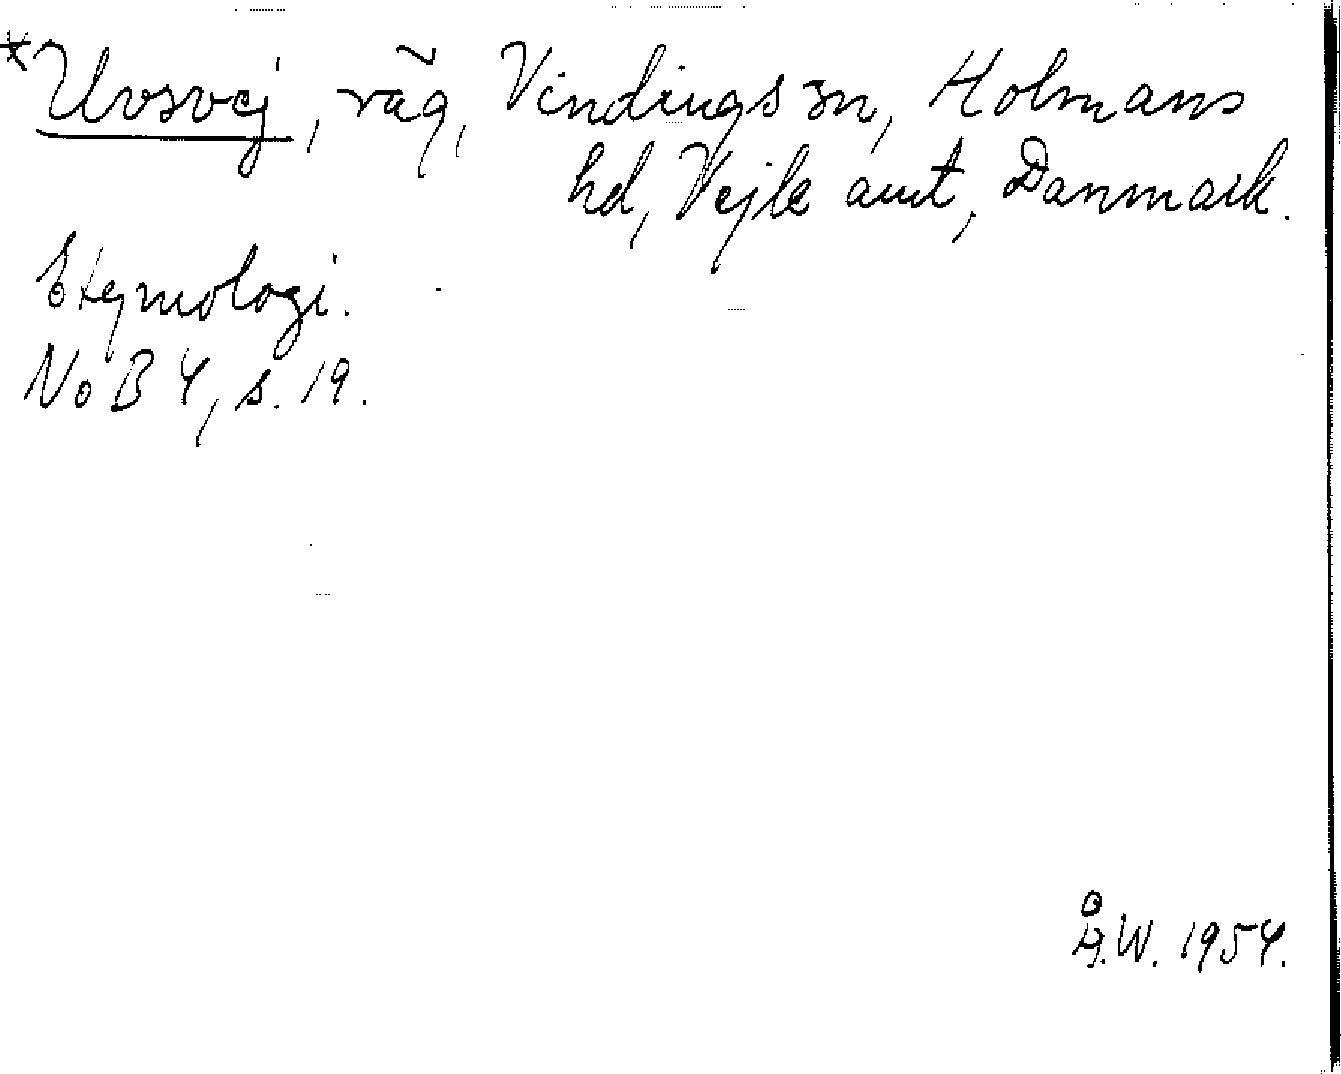 *Uvsvej, väg, Vindings sn, Holmans
hd, Vejle amt, Danmark.
Etymologi.
NoB 4, s. 19.
Å.W. 1954.